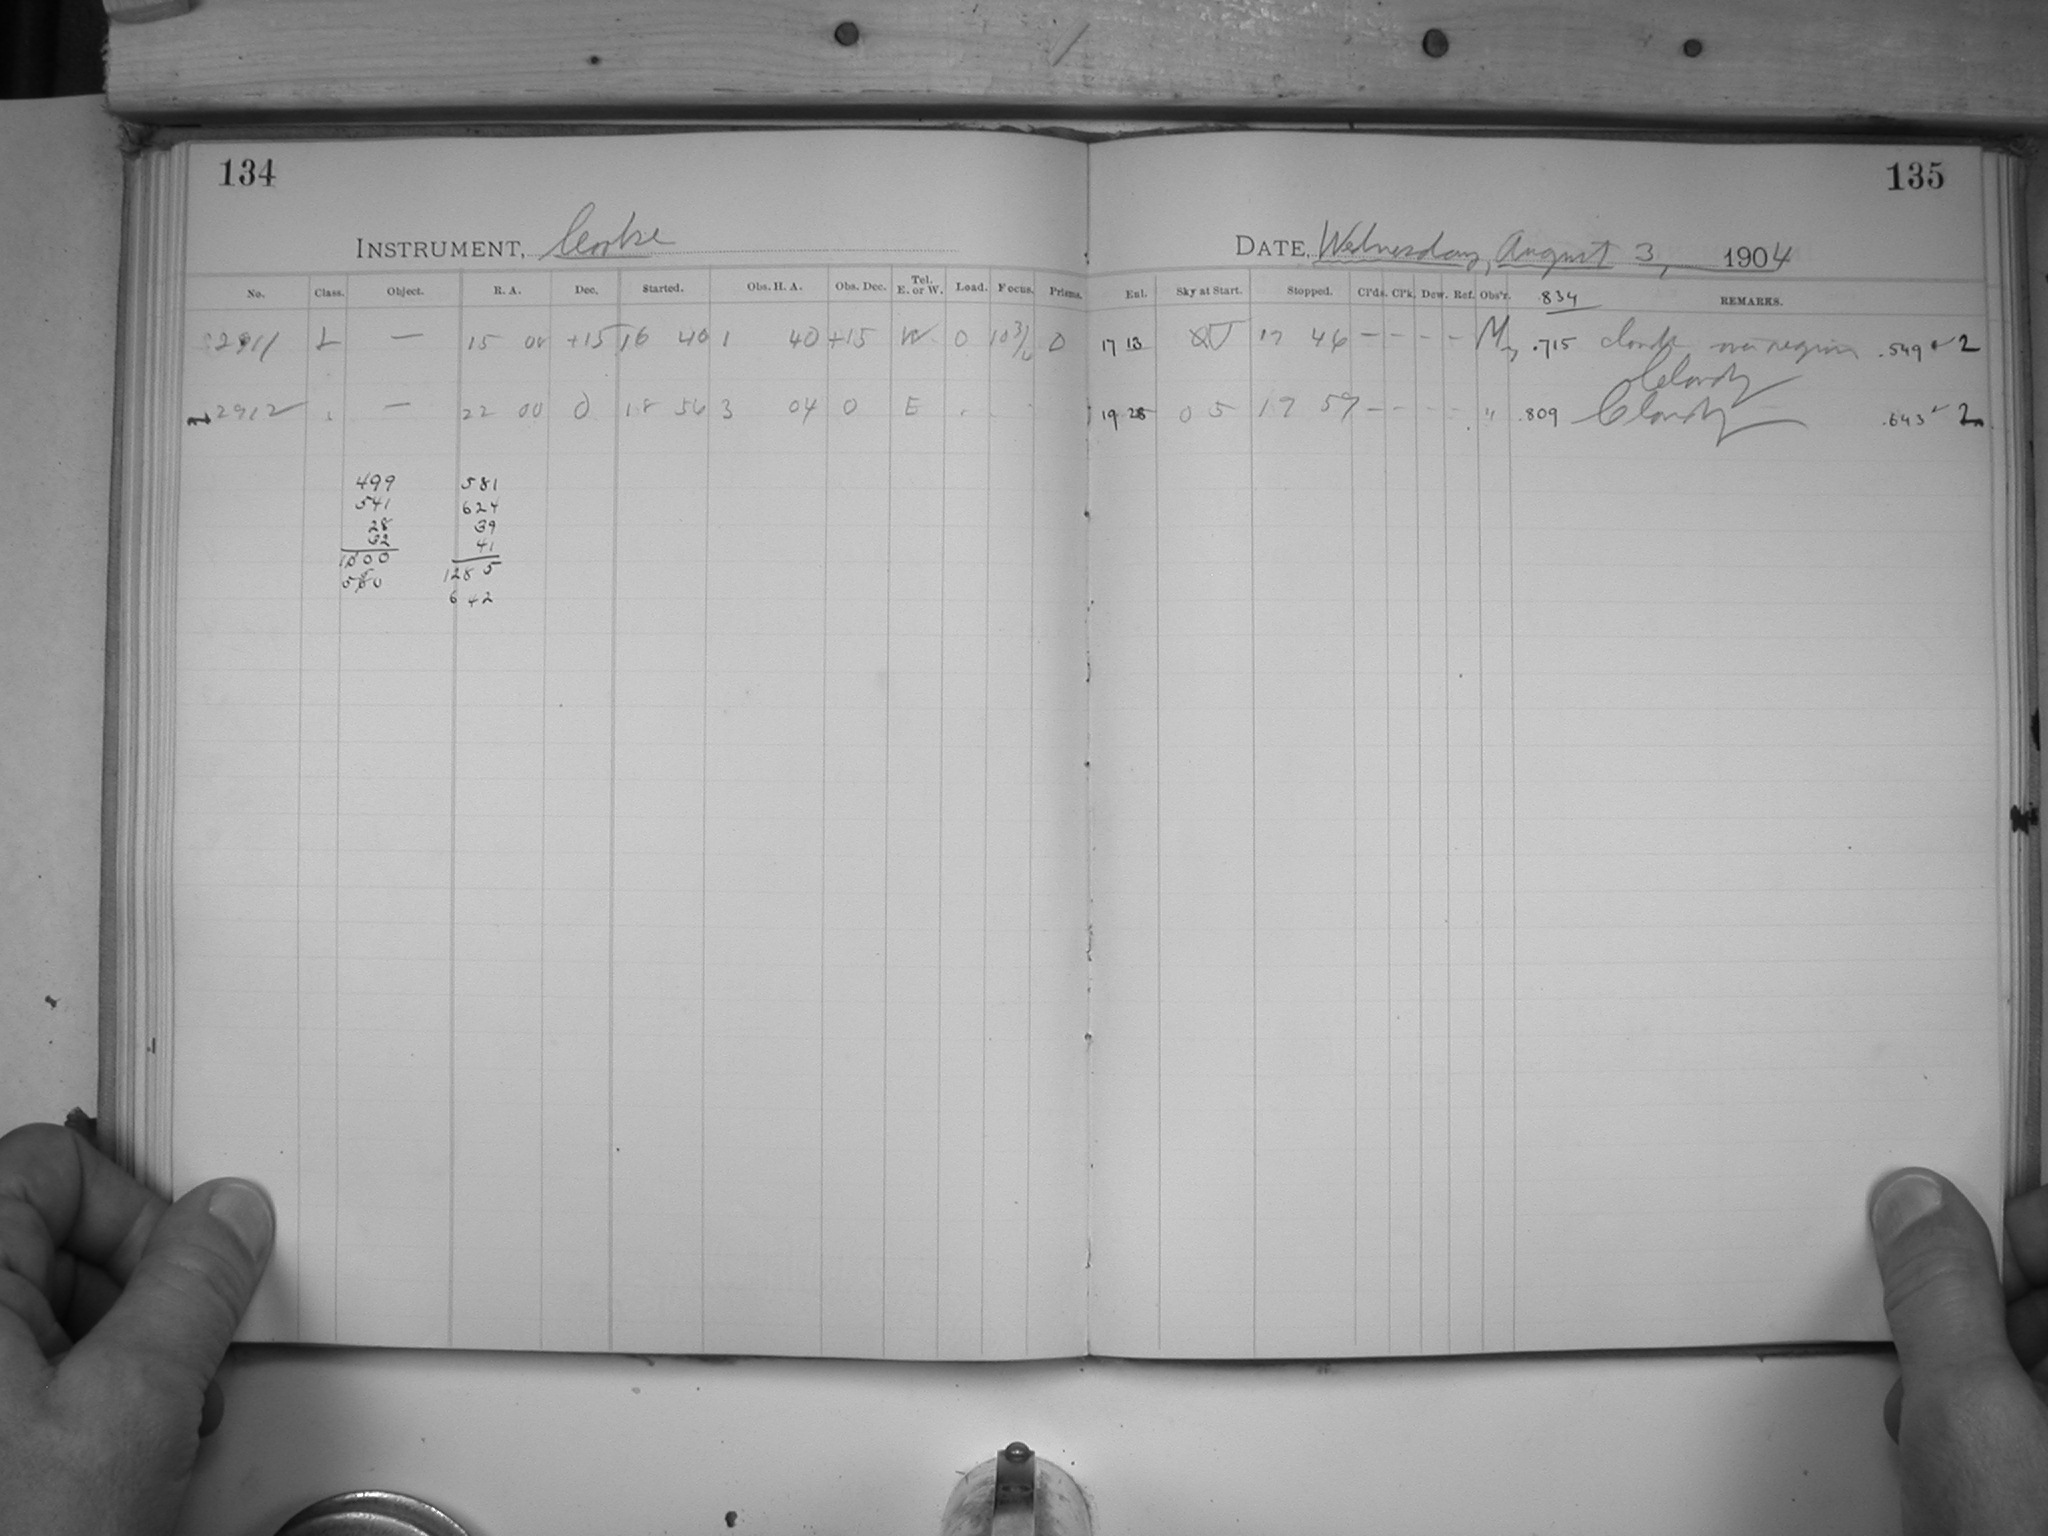 134
135
INSTRUMENT, Cooke
DATE, Wednesday, August 3, 1904
No. Class. Object. R. A. Dec. Started. Obs. H. A. Obs. Dec. Tel. E. or W. Load. Focus. Prisms. Enl. Sky at Start. Stopped. Cl'ds. Cl'k. Dew. Ref. Obs'r. .834 REMARKS.
2911 L — 15 00 +15 16 40 1 40 +15 W 0 0 17 13 17 46 — - - - .715 clouds over region .549 2
Cloudy
2912 — 22 00 0 18 56 3 04 0 E 19 28 0 5 19 59 — - - - " .809 Cloudy .643 2
499 581
541 624
28 39
32 41
1100 1285
550 642